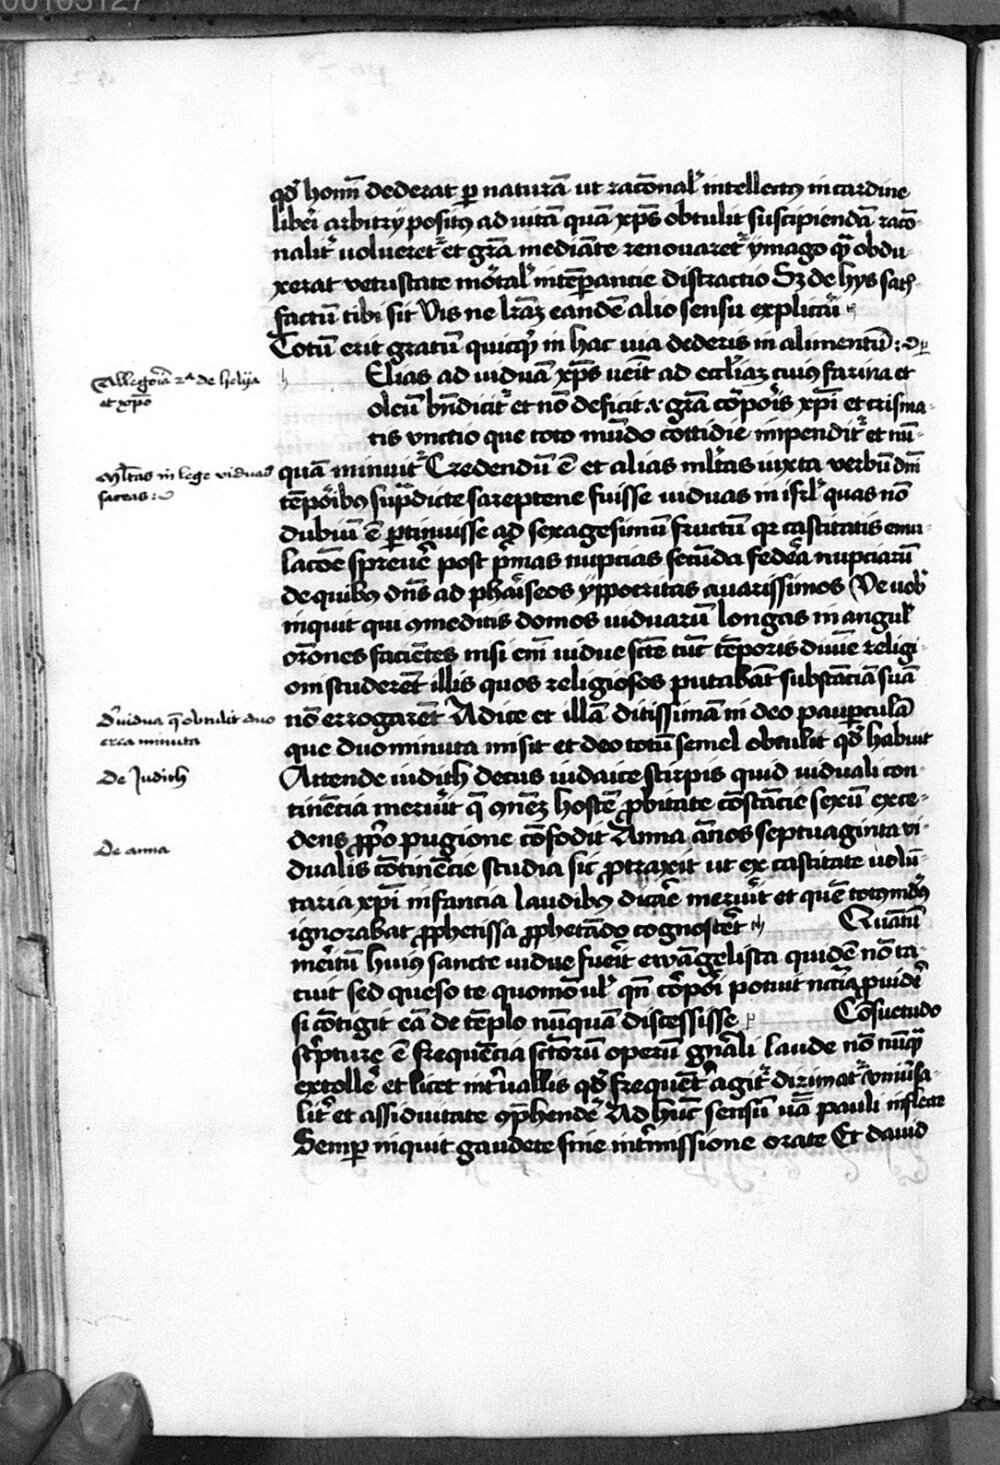 00103127
qđ homī dederat ꝑ naturā ut racōnal' intellectꝰ in cardine
liberi arbitrij positꝰ ad uitā quā xp̄s obtulit suscipiendā racō
nalit' uoluerēt et grām mediāte renouaret' ymago q̄ obdu
xerat vetustate mōtal' intēꝑancie distractio Sꝫ de hys sat'
factū tibi sit Vis ne lrāꝫ eandē alio sensu explicari
Totū erit gratū quicq̄ in hac uia dederis in alimentū :
Allegoria 2ᵃ de helija
et xpō
Elias ad uiduā xp̄s ueīt ad eccl'iaꝫ cuiꝰ farina et
oleū bn̄dicit' et nō deficit grā cōpoīs xp̄i et crisma-
tis vnctio que toto mūdo cottidie inpendit' et nū-
Ml'tas in lege viduas
sāctas :
quam minuit' Credendū ē et alias ml'tas iuxta verbū dn̄i
tēpōibꝰ supͣdicte sareptene fuisse uiduas in isrl' quas nō
dubiū ē ꝑtinuisse ad sexagesimū fructū qr castitatis emu-
lacōe spreuē post p'mas nupcias secūda fedeͣa nupciarū
de quibꝰ dn̄s ad phaiseos yppocritas auarissimos Ve uob'
inquit qui ꝯmeditis domos uiduarū longas in angul'
orōnes faciētes nisi em̄ uidue sctē tūc tēporis diuīe religi-
oni studerēt illis quos religiosos putabāt substāciā suā
D' uidua q̄ obtulit duo
erea minuta
nō errogarēt Adice et illā ditissimā in deo pauꝑculā
que duo minuta misit et deo totū semel obtulit qđ habuit
De Judith
Attende iudith decus iudaice stirpis quid uiduali con
tinēcia meruit q̄ ꝯneꝫ hostē ꝓbitate cōstācie sexū exce-
De anna
dens ꝓp'o pugione cōfodit Anna ānos septuaginta vi-
dualis cōtinēcie studia sic ꝓtraxit ut ex castitate uolū-
taria xp̄i infancia laudibꝰ dicāe meruit et quē totꝰ mūdꝰ
ignorabat ꝓphetissa ꝓphetādo cognoscēt Quātū
meītū huiꝰ sancte uidue fueīt ewāgelista quidē nō ta-
cuit sed queso te quomō ul' qn̄ cōpōi potuit nctīa ꝓuide'
si cōtigit eā de tēplo nūquā discessisse Cōsuetudo
sc'pture ē frequēcia sctōrū operū gnāli laude nō nūq̄
extolle' et licet int'uallis qđ frequēt' agit' dirimat' vniu'sa-
lit' et assiduitate ꝯp̄hende' Ad hūc sensū uā pauli inflecte
Semꝑ inquit gaudete sine int'missione orate Et dauid